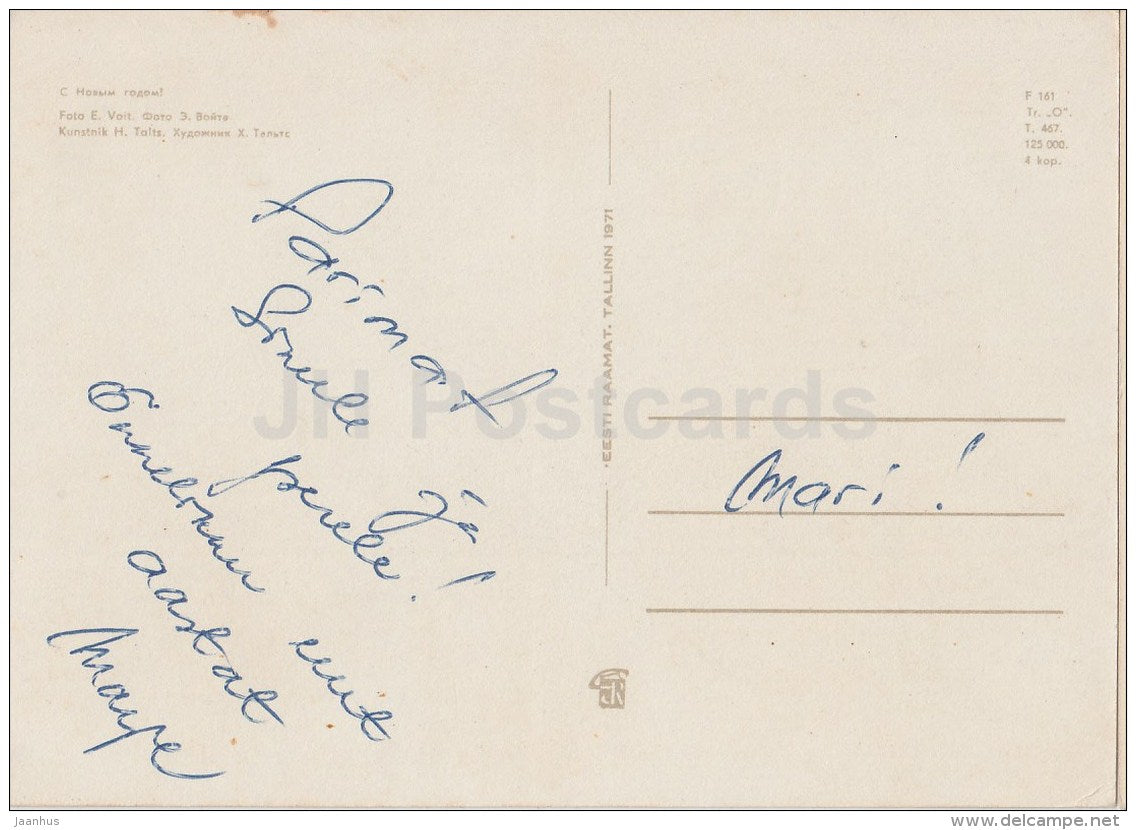 С Новым годом!
Foto E. Voit. Фото Э. Войта
Kunstnik H. Talts. Художник Х. Тальтс
F 161
Tr. „O".
T. 467.
125 000.
4 kop.
Parimat
Sinule ja
perele!
Õnnelikku uut
aastat
EESTI RAAMAT. TALLINN 1971
Mari!
JH Postcards
Jaanhus
www.delcampe.net